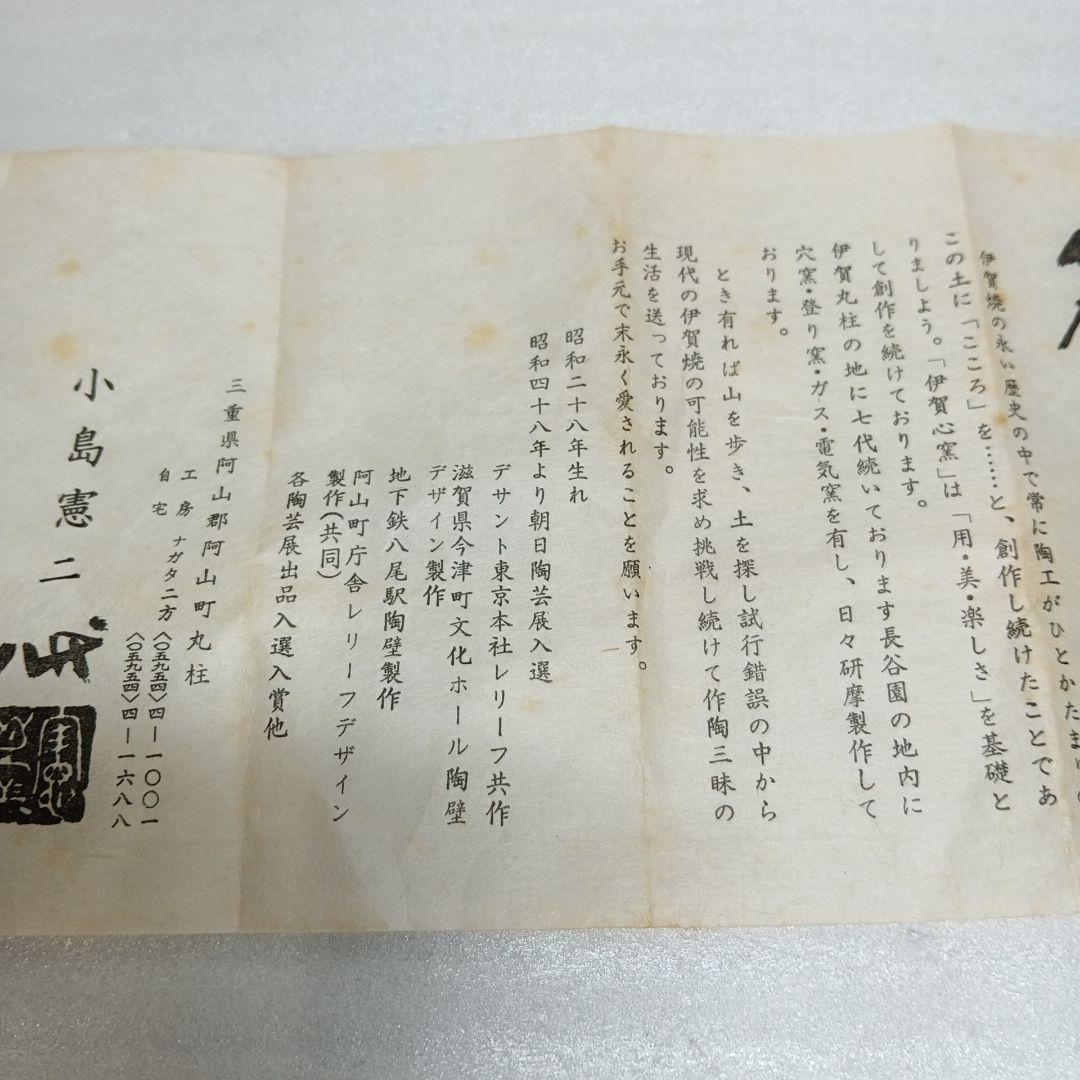 伊賀焼の永い歴史の中で常に陶工がひとかたまりの
この土に「こころ」を……と、創作し続けたことであ
りましよう。「伊賀心窯」は「用・美・楽しさ」を基礎と
して創作を続けております。
伊賀丸柱の地に七代続いております長谷園の地内に
穴窯・登り窯・ガス・電気窯を有し、日々研摩製作して
おります。
とき有れば山を歩き、土を探し試行錯誤の中から
現代の伊賀焼の可能性を求め挑戦し続けて作陶三昧の
生活を送っております。
お手元で末永く愛されることを願います。
昭和二十八年生れ
昭和四十八年より朝日陶芸展入選
デサント東京本社レリーフ共作
滋賀県今津町文化ホール陶壁
デザイン製作
地下鉄八尾駅陶壁製作
阿山町庁舎レリーフデザイン
製作(共同)
各陶芸展出品入選入賞他
三重県阿山郡阿山町丸柱
工房 ナガタニ方〈〇五九五四〉四ー一〇〇一
自宅 〈〇五九五四〉四ー一六八八
小島憲二